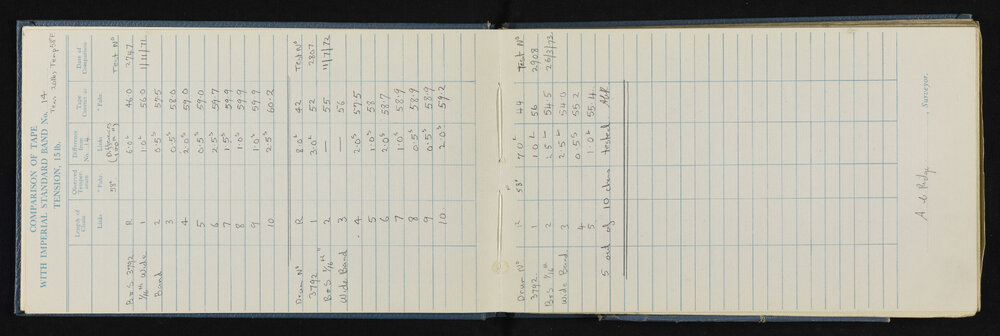 COMPARISON OF TAPE
WITH IMPERIAL STANDARD BAND No. 14
TENSION, 15 lb.
Temp 58F
Length of Chain
Observed Temperature
Difference from No. 14
Tape Correct at
Date of Comparison
Links
° Fahr.
Links
Fahr.
Test Nº
58°
B & S. 3792 R 6.0 L 46.0 2747
1/16th Wide 1 1.0 L 56.0 1/11/71
Band 2 0.5 S 59.5
3 0.5 S 58.0
4 2.0 S 59.0
5 0.5 S 59.0
6 2.5 S 59.7
7 1.5 S 59.9
8 1.0 S 59.9
9 1.0 S 59.9
10 2.5 S 60.2
Drum Nº R 8.0 L 42 Test Nº
3792 1 3.0 L 52 2807
B & S 1/16th 2 — 55 11/7/72
Wide Band 3 — 56
4 2.0 S 57.5
5 1.0 S 58
6 2.0 S 58.7
7 1.0 S 58.9
8 0.5 S 58.9
9 0.5 S 58.9
10 2.0 S 59.2
Drum Nº R 58° 7.0 L 44 Test Nº
3792 1 1.0 L 56 2908
B & S 1/16th 2 2.5 L 54.5 26/3/73
Wide Band 3 2.5 L 54.0
4 0.5 S 55.2
5 1.0 L 55.4
5 out of 10 chns tested
Surveyor.